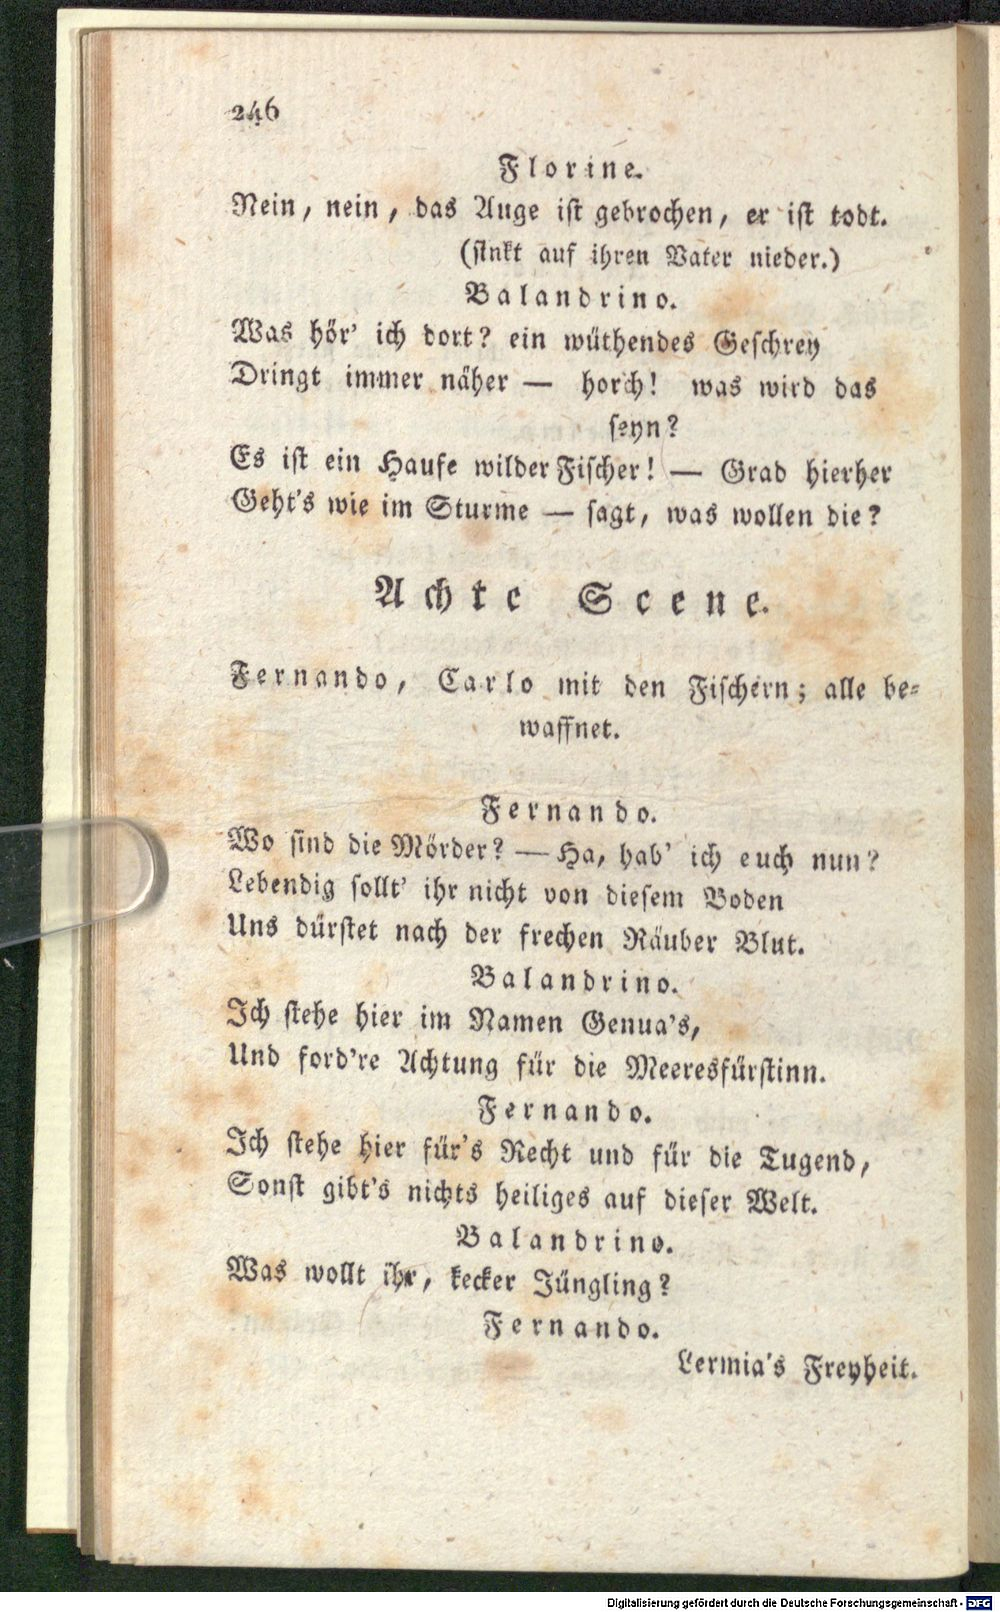 246
Florine.
Nein, nein, das Auge ist gebrochen, er ist todt.
(sinkt auf ihren Vater nieder.)
Balandrino.
Was hör' ich dort? ein wüthendes Geschrey
Dringt immer näher — horch! was wird das
seyn?
Es ist ein Haufe wilder Fischer! — Grad hierher
Geht's wie im Sturme — sagt, was wollen die?
Achte Scene.
Fernando, Carlo mit den Fischern; alle be-
waffnet.
Fernando.
Wo sind die Mörder? — Ha, hab' ich euch nun?
Lebendig sollt' ihr nicht von diesem Boden
Uns dürstet nach der frechen Räuber Blut.
Balandrino.
Ich stehe hier im Namen Genua's,
Und ford're Achtung für die Meeresfürstinn.
Fernando.
Ich stehe hier für's Recht und für die Tugend,
Sonst gibt's nichts heiliges auf dieser Welt.
Balandrino.
Was wollt ihr, kecker Jüngling?
Fernando.
Lermia's Freyheit.
Digitalisierung gefördert durch die Deutsche Forschungsgemeinschaft - DFG